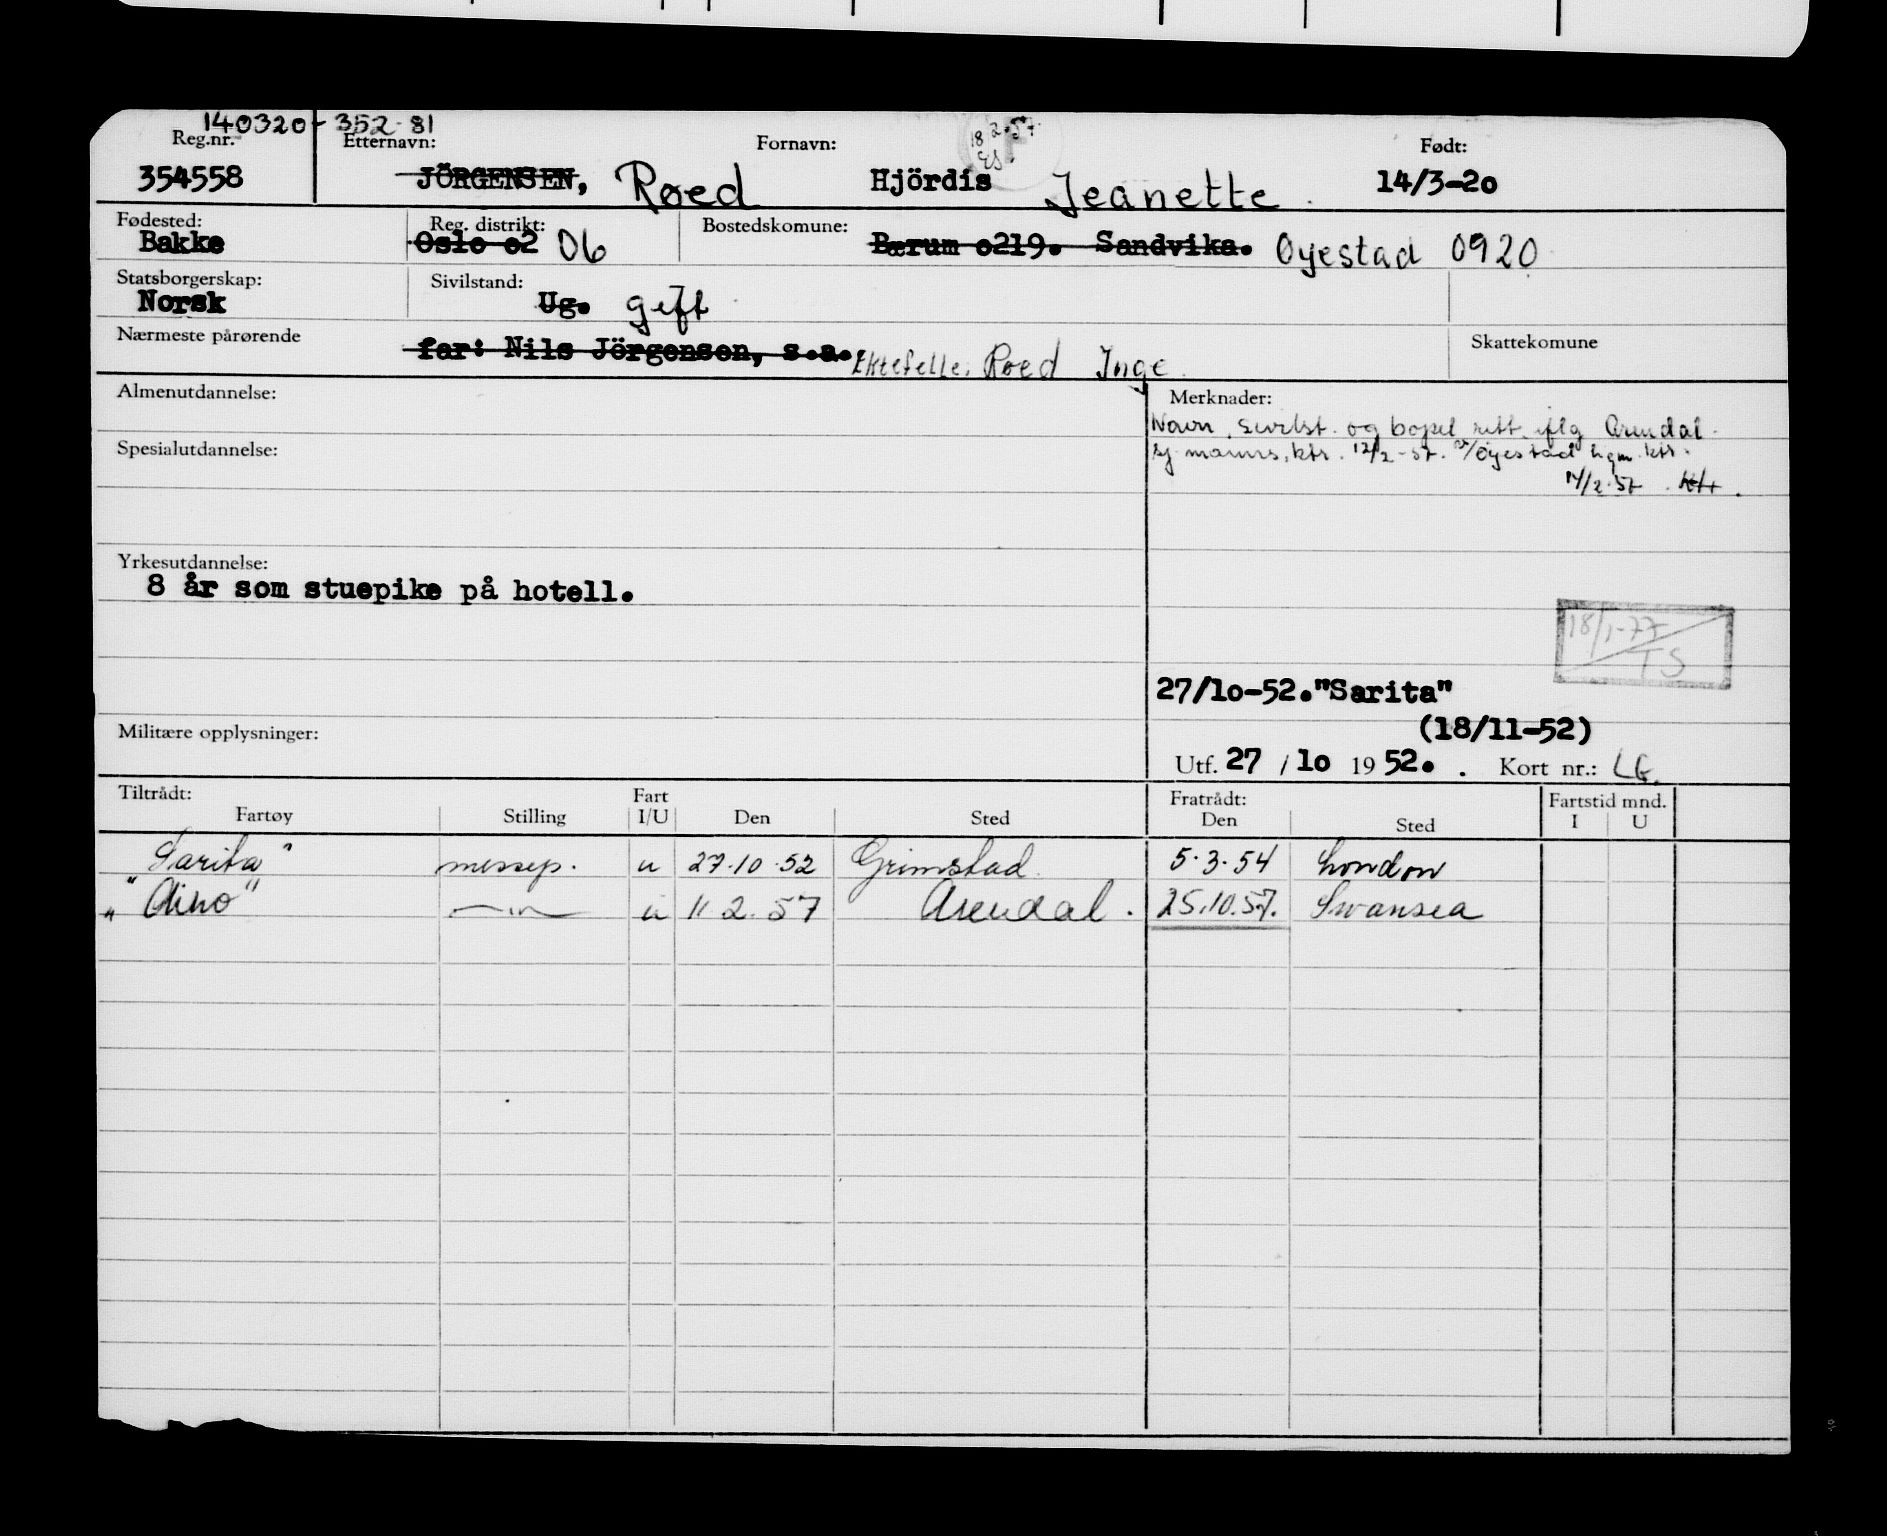 140320-352-81
Reg.nr. Etternavn: Fornavn: 18 2.57. Født:
354558 JÖRGENSEN, Røed Hjördis Jeanette. 14/3-2o
Fødested: Reg. distrikt: Bostedskomune:
Bakke Oslo o2 06 Bærum o219. Sandvika. Øyestad 0920
Statsborgerskap: Sivilstand:
Norsk Ug. gift
Nærmeste pårørende far: Nils Jörgensen, s.a. Ektefelle: Røed Inge. Skattekomune
Almenutdannelse: Merknader:
Navn, sivilst. og bopel rett. iflg Arendal
Spesialutdannelse: sj.manns.ktr. 12/2-57. Øyestad ktr.
14/2-57
Yrkesutdannelse:
8 år som stuepike på hotell.
18/1-77
TS
27/lo-52."Sarita"
(18/11-52)
Militære opplysninger:
Utf. 27 / lo 19 52. . Kort nr.: LG.
Tiltrådt: Fart Fratrådt: Fartstid mnd.
Fartøy Stilling I/U Den Sted Den Sted I U
"Sarita" messep. u 27.10.52 Grimstad 5.3.54 London
"Aino" —"— u 11 2.57 Arendal. 25.10.57. Swansea